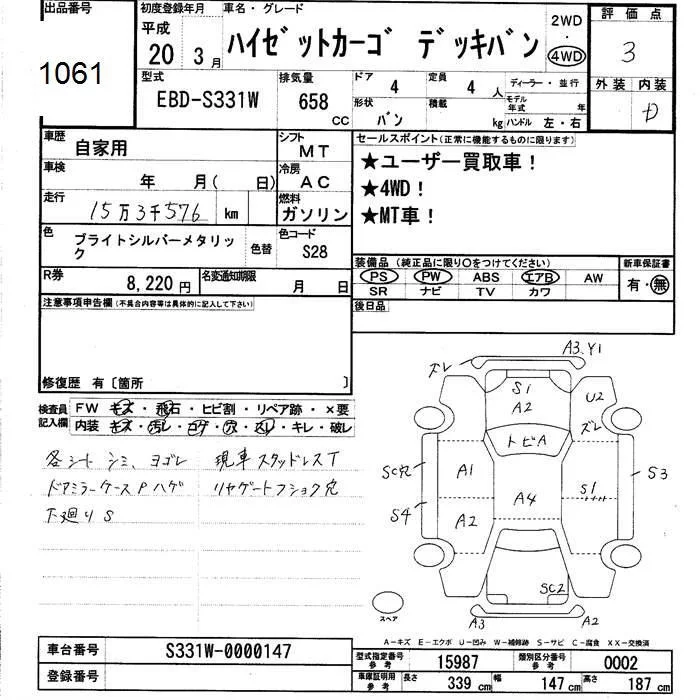 出品番号
1061
初度登録年月
平成
20 3月
車名・グレード
ハイゼットカーゴ デッキバン
2WD
・
4WD
評価点
3
外装 内装
D
型式
EBD-S331W
排気量
658
CC
ドア 4
定員 4 人
ディーラー・並行
形状 バン
積載 kg
モデル年式 年
ハンドル 左・右
車歴
自家用
シフト
MT
車検
年 月( 日)
冷房
AC
走行
15万3千576 km
燃料
ガソリン
色
ブライトシルバーメタリック
色替
色コード
S28
R券
8,220円
名変通知期限
月 日
セールスポイント(正常に機能するものに限ります)
★ユーザー買取車!
★4WD!
★MT車!
装備品(純正品に限り○をつけてください)
PS PW ABS エアB AW
SR ナビ TV カワ
新車保証書
有・無
注意事項申告欄(不具合内容等は具体的に記入して下さい)
後日品
修復歴 有〔箇所 〕
検査員記入欄
FW キズ・飛石・ヒビ割・リペア跡・×要
内装 キズ・汚レ・コゲ・穴・スレ・キレ・破レ
各シート シミ、ヨゴレ 現車スタッドレスT
ドアミラーケースPハゲ リヤゲートフショク穴
下廻りS
ズレ
A3.Y1
S1
A2
U2
ズレ
トビA
SC穴
A1
S1
S3
A4
S4
A2
SC2
A3
A2
スペア
A-キズ E-エクボ U-凹み W-補修跡 S-サビ C-腐食 XX-交換済
車台番号
S331W-0000147
登録番号
型式指定番号 参考
15987
類別区分番号 参考
0002
車庫証明用 参考
長さ 339 cm
幅 147 cm
高さ 187 cm